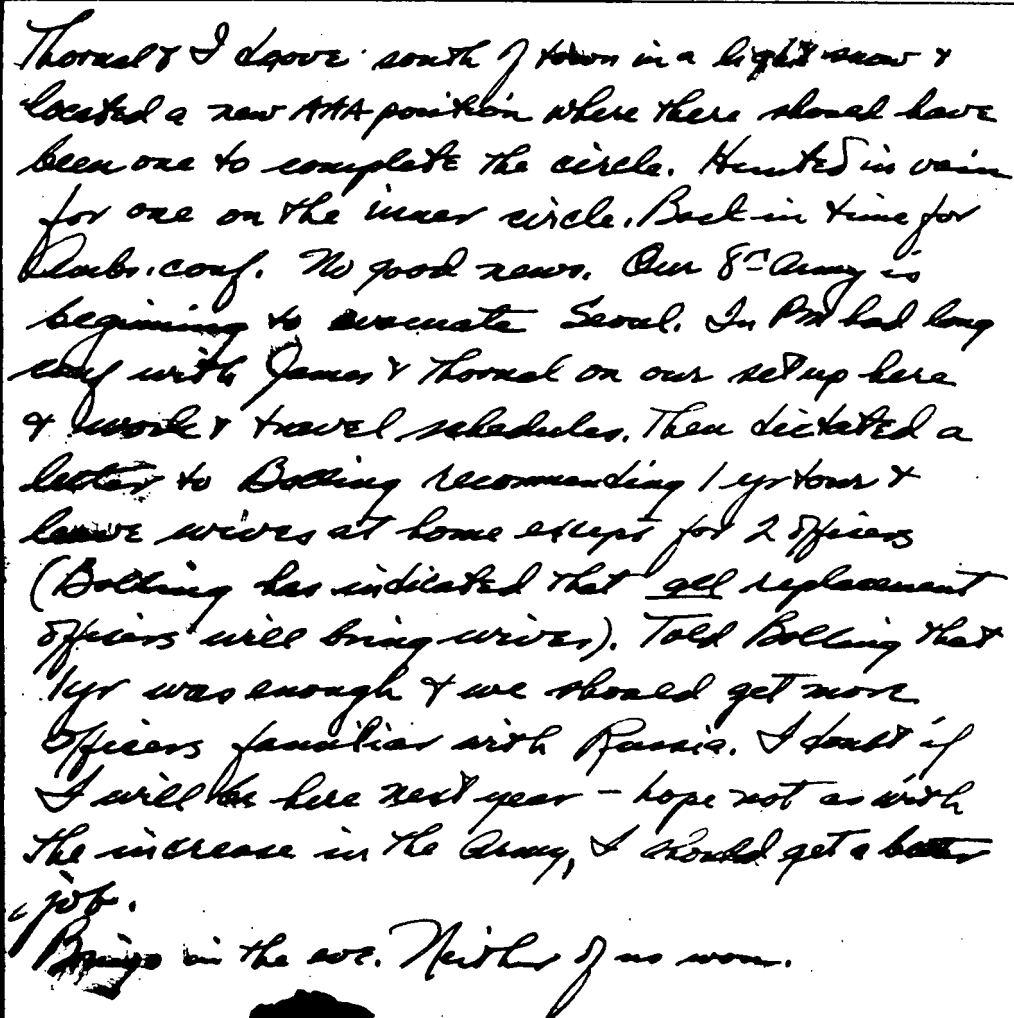 Thornal & I drove south of town in a light snow &
located a new AAA position where there should have
been one to complete the circle. Hunted in vain
for one on the inner circle. Back in time for
Ambs. conf. No good news. Our 8th Army is
beginning to evacuate Seoul. In PM had long
conf with James & Thornal on our set up here
& work & travel schedules. Then dictated a
letter to Bolling recommending 1 yr tour &
leave wives at home except for 2 officers
(Bolling has indicated that all replacement
officers will bring wives). Told Bolling that
1yr was enough & we should get more
officers familiar with Russia. I doubt if
I will be here next year – hope not as with
the increase in the Army, I should get a better
job.
Bingo in the eve. Neither of us won.